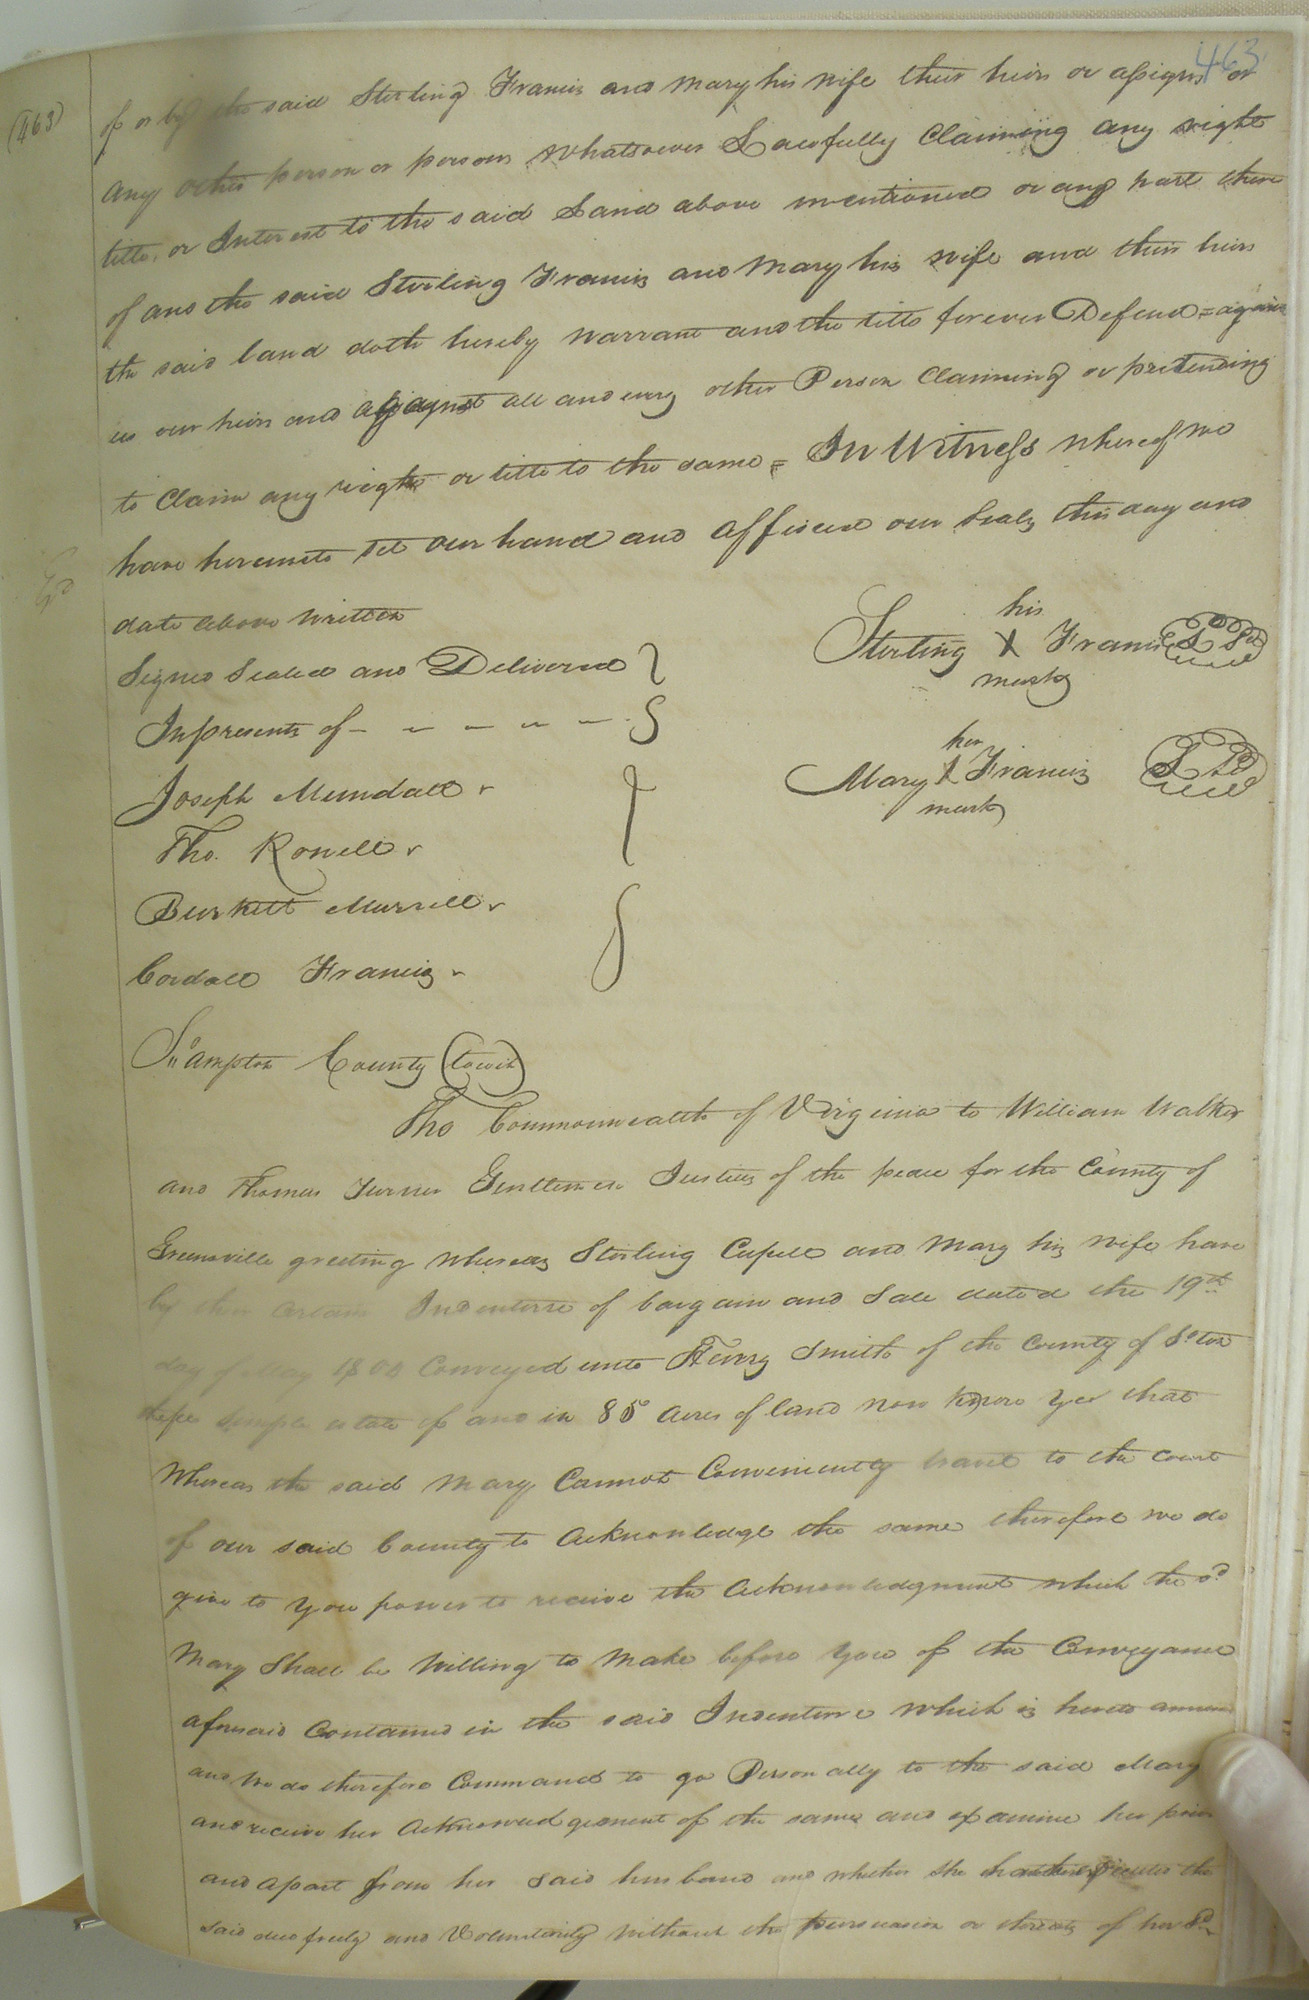 463
(463)
of or by the said Sterling Francis and Mary his wife their heirs or assigns or
any other person or persons whatsoever Lawfully Claiming any right
title, or Interest to the said Land above mentioned or any part there
of and the said Sterling Francis and Mary his wife and their heirs
the said land doth hereby warrant and the title forever Defend = against
us our heirs and against all and every other Person Claiming or pretending
to Claim any right or title to the same = In Witness whereof we
have hereunto set our hand and affixed our Seals this day and
date above written
Signed Sealed and Delivered
In presents of - - - - - -
his
Sterling X Francis L Sd
mark
her
Mary X Francis L Sd
mark
Joseph Mundall
Tho. Rowell
Burkett Murrell
Cordall Francis
So ampton County (towit)
The Commonwealth of Virginia to William Walker
and Thomas Turner Gentlemen Justices of the peace for the County of
Greensville greeting whereas Sterling Capell and Mary his wife have
by their certain Indenture of bargain and Sale dated the 19th
day of May 1800 Conveyed unto Henry Smith of the County of So ton
the fee simple estate of and in 85 Acres of land now know Yee that
Whereas the said Mary Cannot Conveniently travel to the court
of our said County to Acknowledge the same therefore we do
give to you power to receive the Acknowledgment which the sd
Mary Shall be Willing to Make before you of the Conveyance
aforesaid Contained in the said Indenture which is hereto annexed
and we do therefore Command to go Personally to the said Mary
and receive her Acknowledgement of the same and examine her privi
and apart from her said husband and whether she hath executed the
said deed freely and Voluntarily without the persuasion or threats of her sd